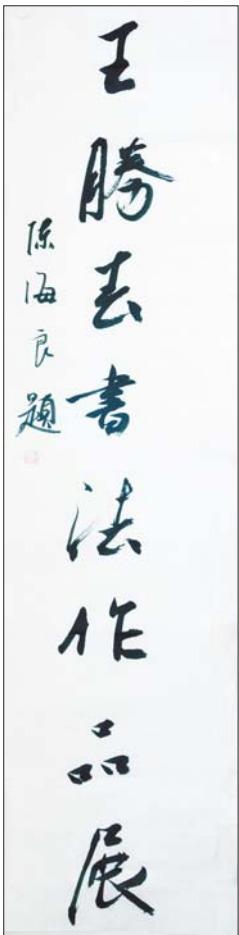 王勝春書法作品展
陈海良題